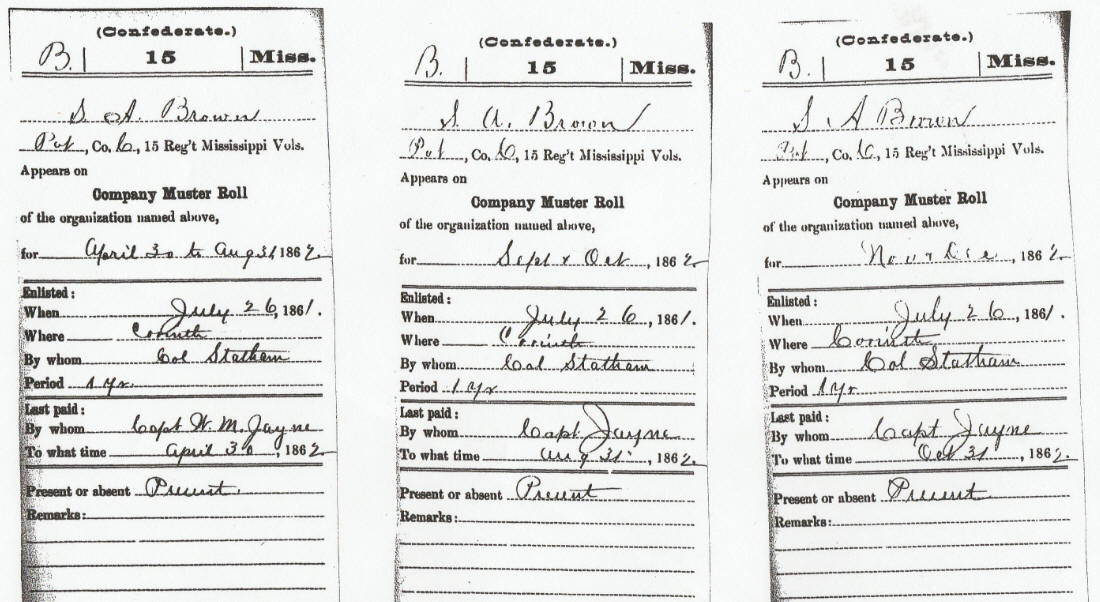 (Confederate.)
B. | 15 | Miss.
S. A. Brown
Pvt, Co. C, 15 Reg't Mississippi Vols.
Appears on
Company Muster Roll
of the organization named above,
for April 30 to Aug 31, 1862.
Enlisted:
When July 26, 1861.
Where Corinth
By whom Col Statham
Period 1 yr.
Last paid:
By whom Capt W. M. Jayne
To what time April 30, 1862.
Present or absent Present.
Remarks:
(Confederate.)
B. | 15 | Miss.
S A. Brown
Pvt, Co. C, 15 Reg't Mississippi Vols.
Appears on
Company Muster Roll
of the organization named above,
for Sept & Oct, 1862.
Enlisted:
When July 26, 1861.
Where Corinth
By whom Col Statham
Period 1 yr
Last paid:
By whom Capt Jayne
To what time Aug 31, 1862.
Present or absent Present
Remarks:
(Confederate.)
B. | 15 | Miss.
S A Brown
Pvt, Co. C, 15 Reg't Mississippi Vols.
Appears on
Company Muster Roll
of the organization named above,
for Nov & Dec, 1862.
Enlisted:
When July 26, 1861.
Where Corinth
By whom Col Statham
Period 1 yr
Last paid:
By whom Capt Jayne
To what time Oct 31, 1862.
Present or absent Present
Remarks: